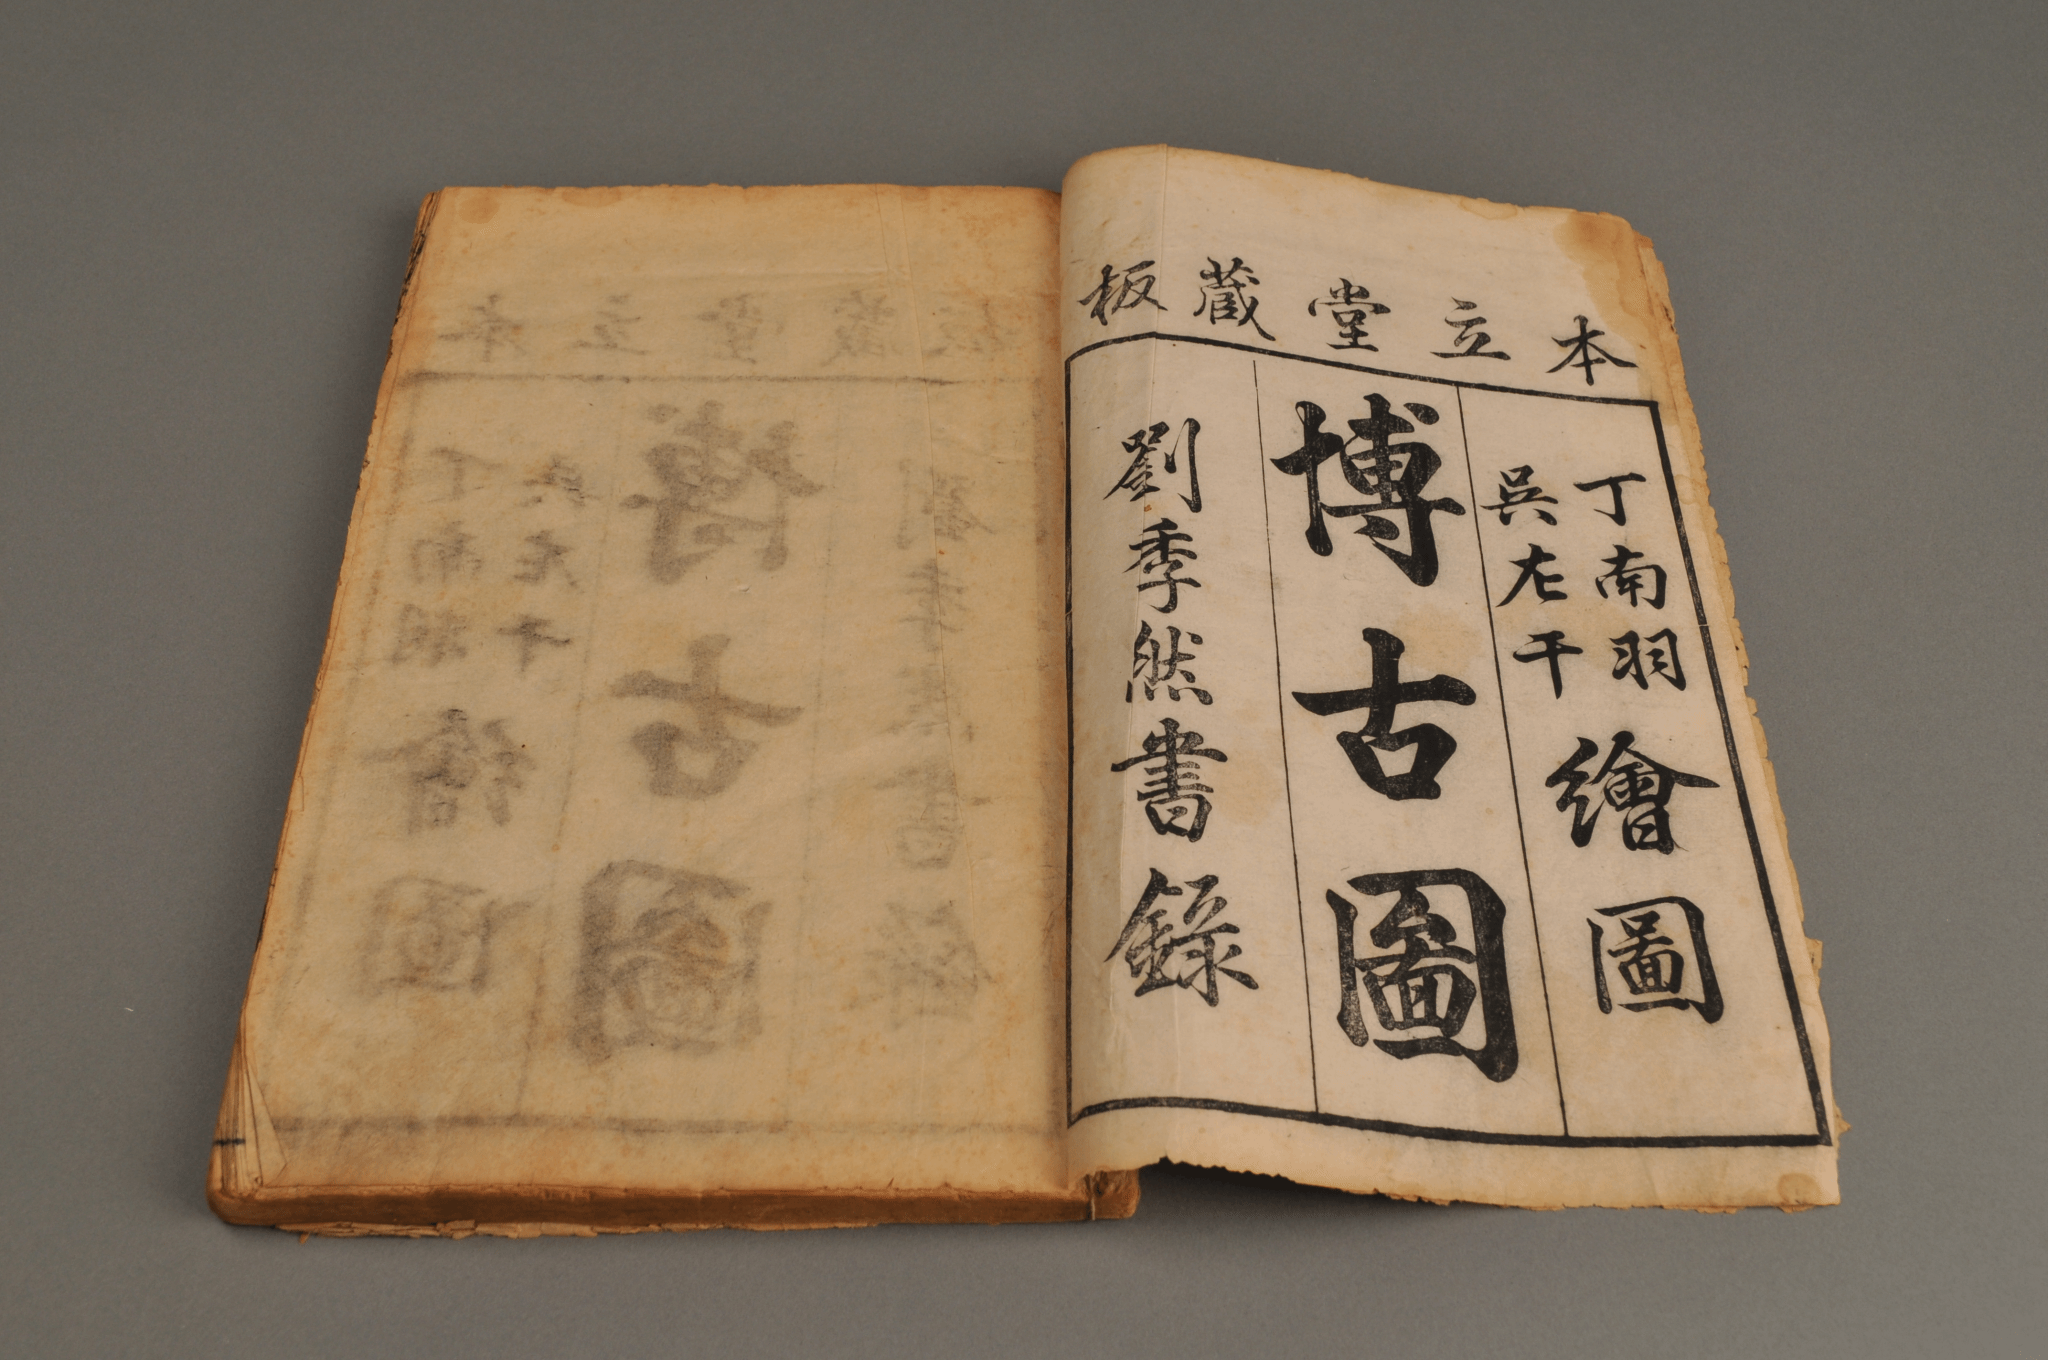 本立堂藏板
丁南羽
吳左干
繪圖
博古圖
劉季然書錄